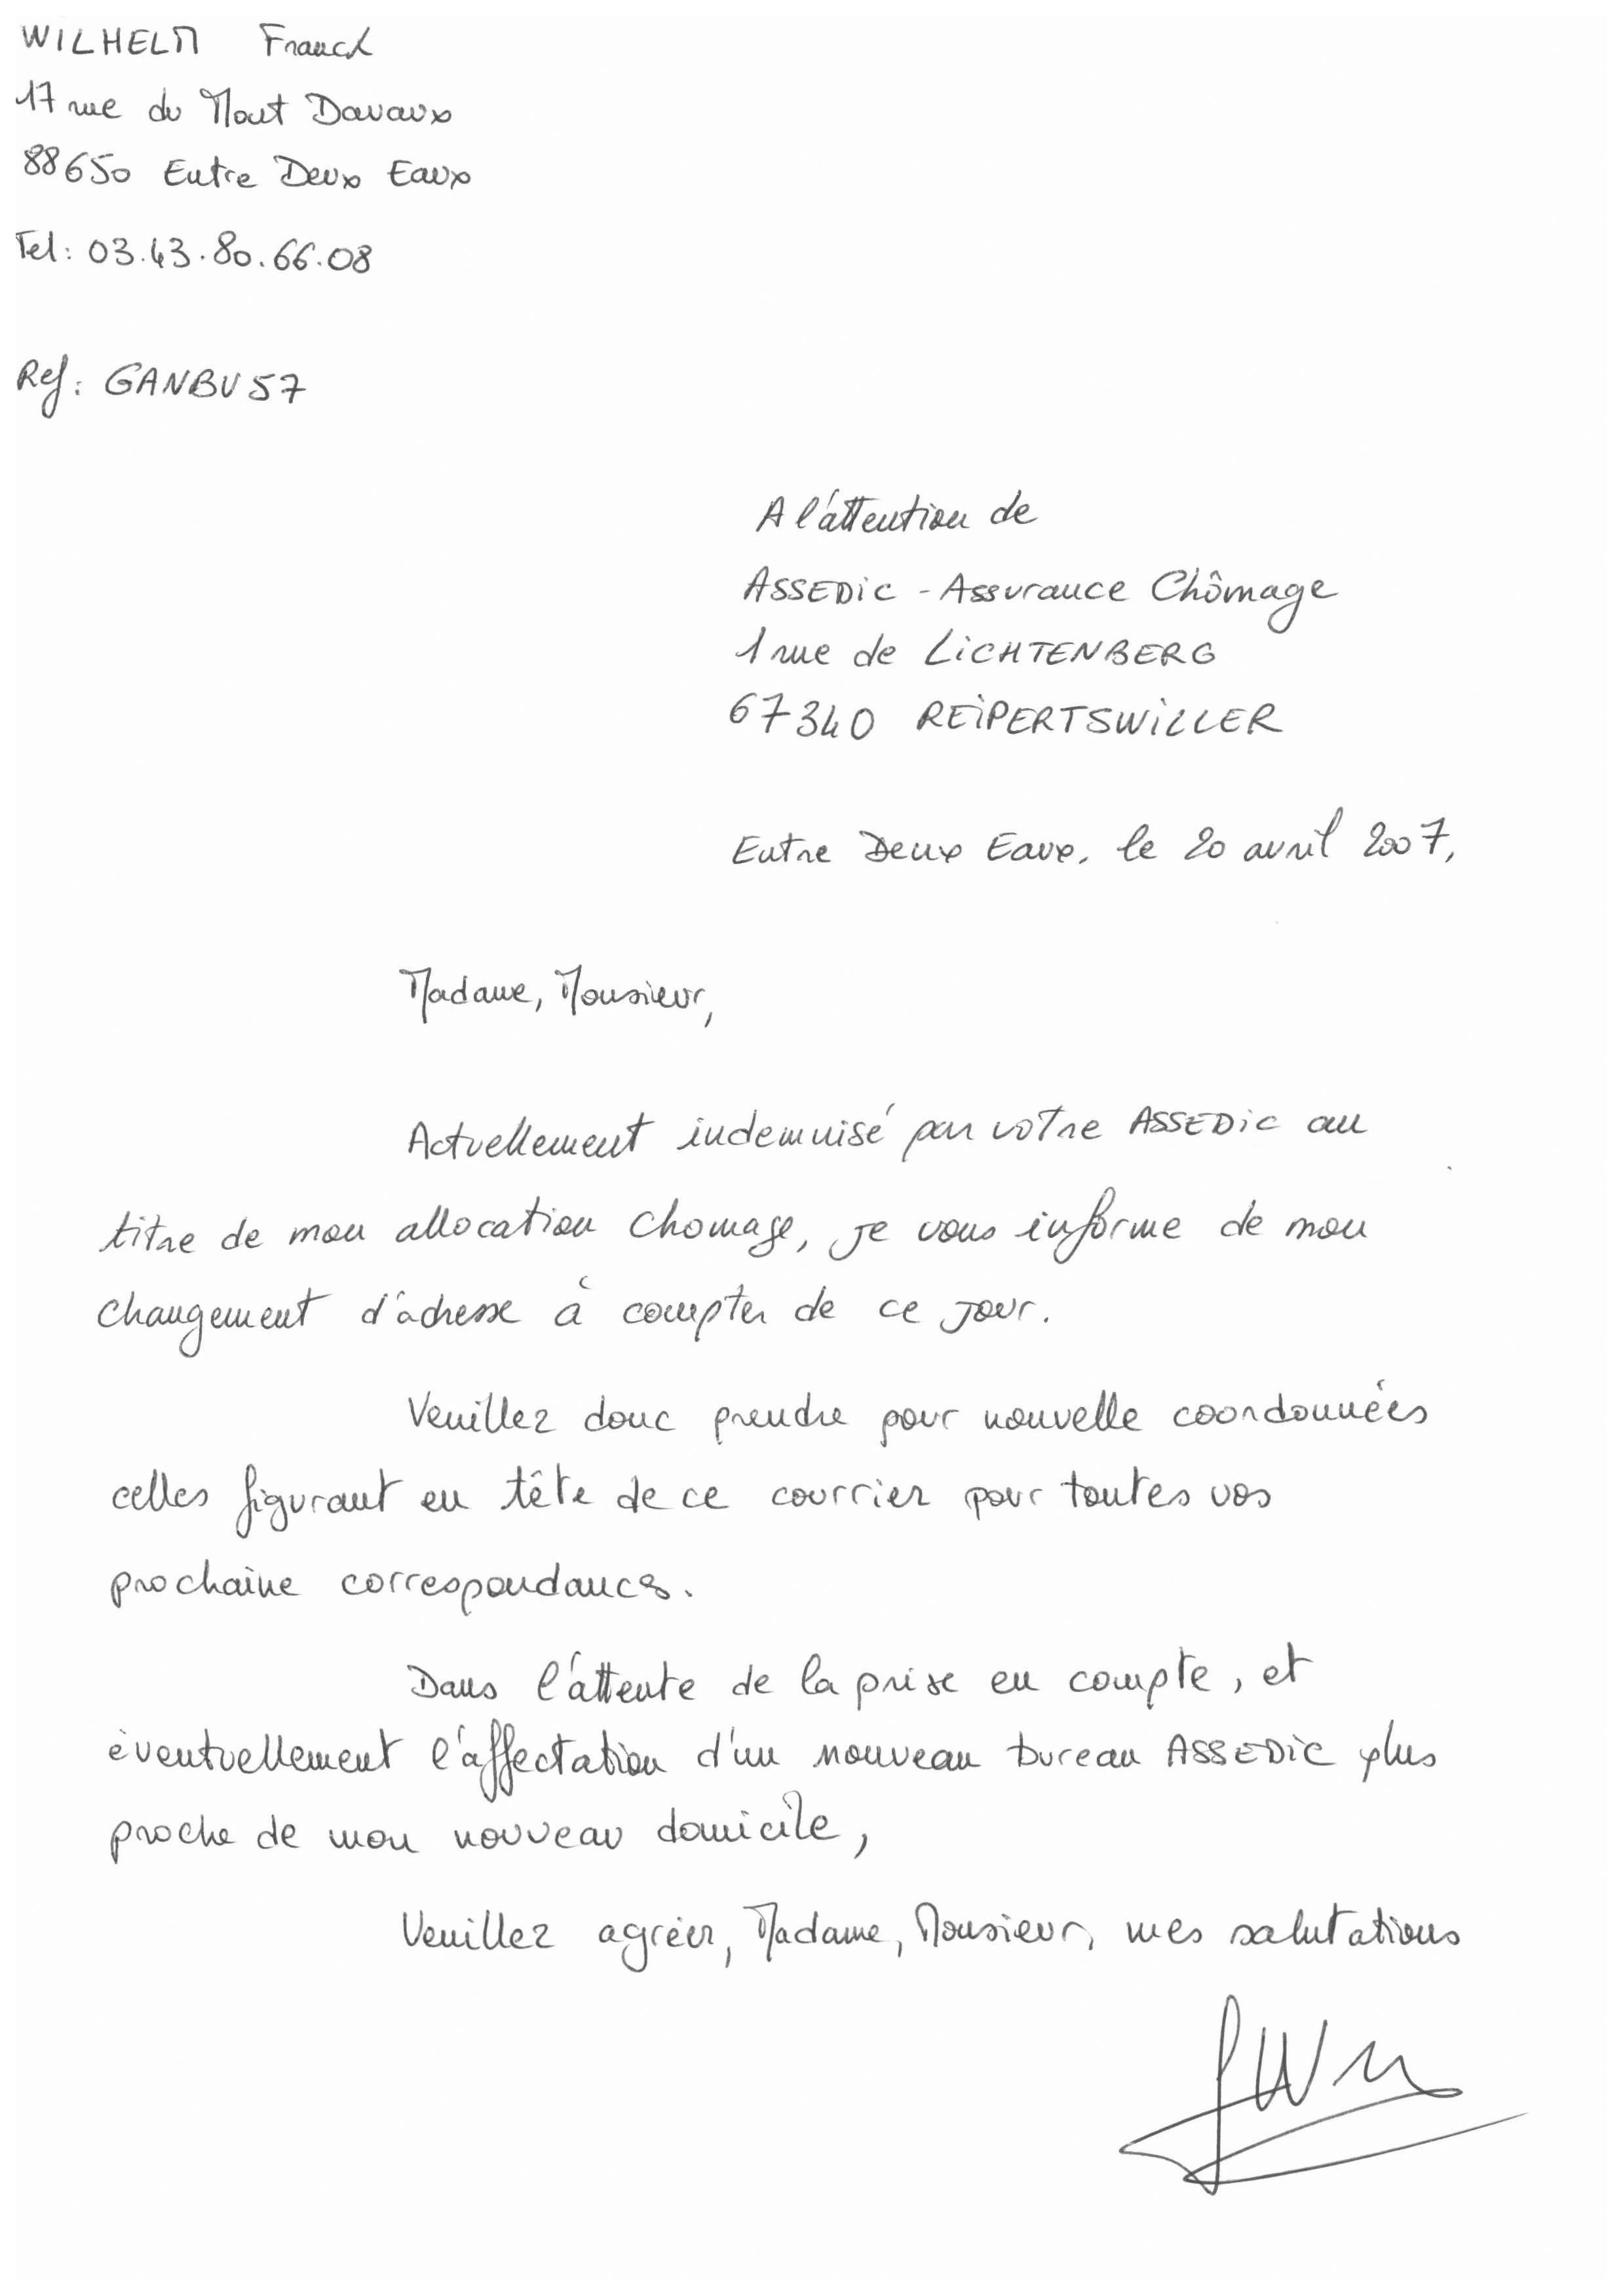 WILHELM Franck
17 rue du Mont Davaux
88650 Entre Deux Eaux
Tel: 03.43.80.66.08
Ref: GANBU57
A l'attention de
ASSEDIC - Assurance Chômage
1 rue de LICHTENBERG
67340 REIPERTSWILLER
Entre Deux Eaux, le 20 avril 2007,
Madame, Monsieur,
Actuellement indemnisé par votre ASSEDIC au
titre de mon allocation chomage, je vous informe de mon
changement d'adresse à compter de ce jour.
Veuillez donc prendre pour nouvelle coordonnées
celles figurant en tête de ce courrier pour toutes vos
prochaine correspondances.
Dans l'attente de la prise en compte, et
éventuellement l'affectation d'un nouveau bureau ASSEDIC plus
proche de mon nouveau domicile,
Veuillez agréer, Madame, Monsieur, mes salutations